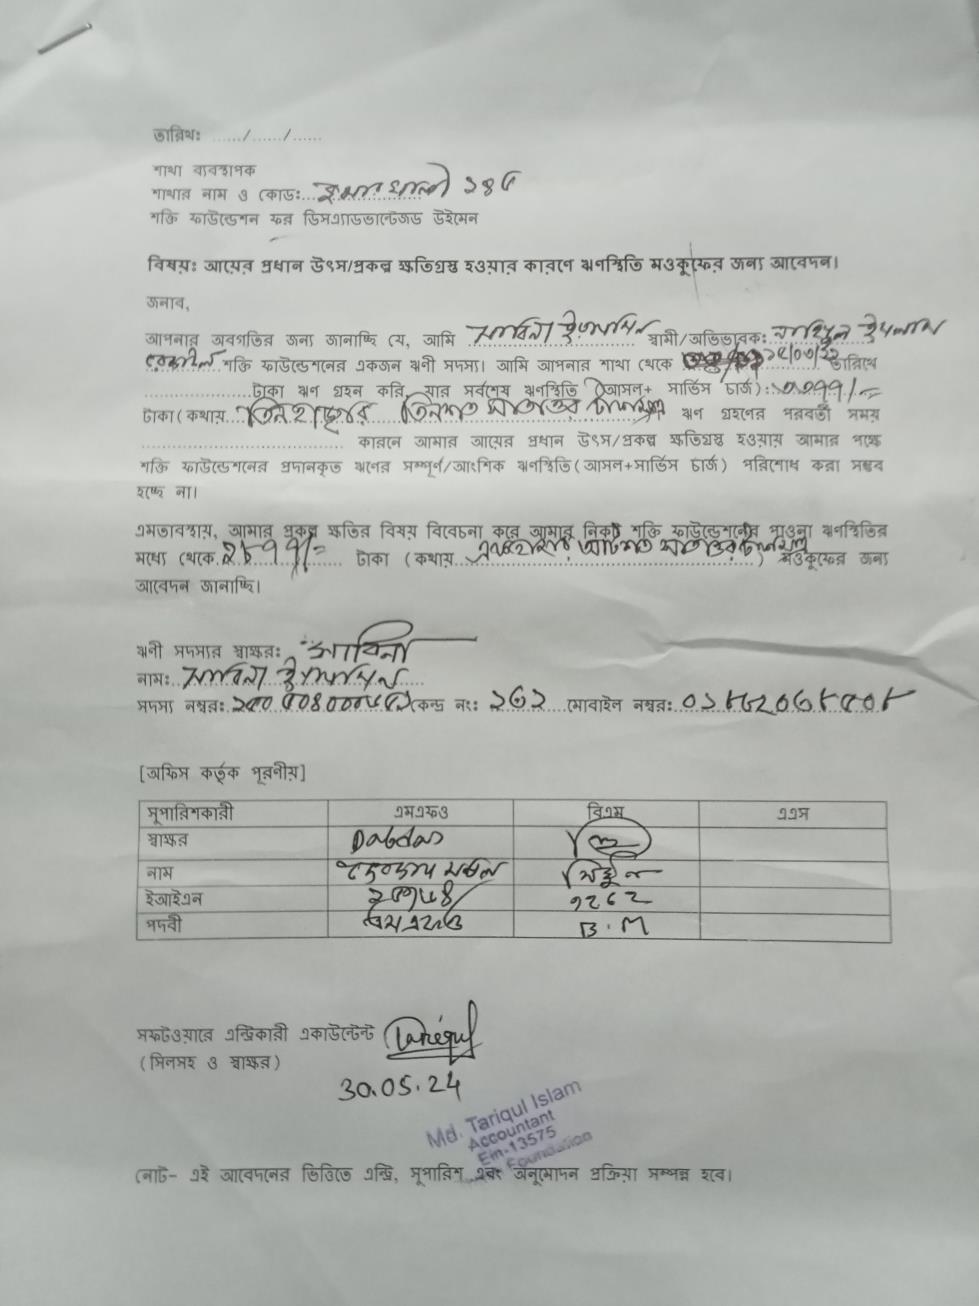 তারিখঃ ....../....../......
শাখা ব্যবস্থাপক
শাখার নাম ও কোডঃ কুমারখালী ১৪৫
শক্তি ফাউন্ডেশন ফর ডিসএ্যাডভান্টেজড উইমেন
বিষয়ঃ আয়ের প্রধান উৎস/প্রকল্প ক্ষতিগ্রস্ত হওয়ার কারণে ঋণস্থিতি মওকুফের জন্য আবেদন।
জনাব,
আপনার অবগতির জন্য জানাচ্ছি যে, আমি সাবিনা ইয়াসমিন স্বামী/অভিভাবকঃ ইসলাম
শক্তি ফাউন্ডেশনের একজন ঋনী সদস্য। আমি আপনার শাখা থেকে তারিখে
.................টাকা ঋণ গ্রহন করি যার সর্বশেষ ঋণস্থিতি (আসল+ সার্ভিস চার্জ): ৩৩৭৭/=
টাকা(কথায় তিনহাজার তিনশত সাতাত্তর টাকামাত্র ঋণ গ্রহণের পরবর্তী সময়
............................ কারনে আমার আয়ের প্রধান উৎস/প্রকল্প ক্ষতিগ্রস্ত হওয়ায় আমার পক্ষে
শক্তি ফাউন্ডেশনের প্রদানকৃত ঋণের সম্পূর্ণ/আংশিক ঋণস্থিতি(আসল+সার্ভিস চার্জ) পরিশোধ করা সম্ভব
হচ্ছে না।
এমতাবস্থায়, আমার প্রকল্প ক্ষতির বিষয় বিবেচনা করে আমার নিকট শক্তি ফাউন্ডেশনের পাওনা ঋণস্থিতির
মধ্যে থেকে টাকা (কথায় আটশত সাতাত্তর টাকামাত্র) মওকুফের জন্য
আবেদন জানাচ্ছি।
ঋনী সদস্যর স্বাক্ষরঃ সাবিনা
নামঃ সাবিনা ইয়াসমিন
সদস্য নম্বরঃ কেন্দ্র নংঃ ২৩২ মোবাইল নম্বরঃ
[অফিস কর্তৃক পূরনীয়]
সুপারিশকারী এমএফও বিএম এএস
স্বাক্ষর
নাম মন্ডল
ইআইএন ৭২৬২
পদবী এমএফও B.M
সফটওয়ারে এন্ট্রিকারী একাউন্টেন্ট Tariqul
(সিলসহ ও স্বাক্ষর)
30.05.24
Md. Tariqul Islam
Accountant
Ein-13575
Foundation
নোট- এই আবেদনের ভিত্তিতে এন্ট্রি, সুপারিশ এবং অনুমোদন প্রক্রিয়া সম্পন্ন হবে।